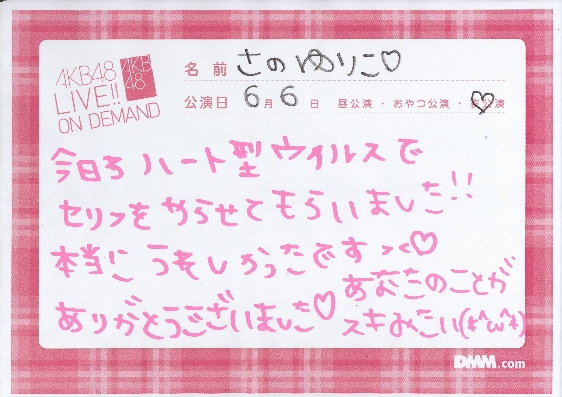 AKB48
LIVE!!
ON DEMAND
AKB
48
名前 さのゆりこ♡
公演日 6月6日 昼公演・おやつ公演・夜公演
今日も ハート型ウイルスで
セリフを やらせてもらいました!!
本当に うれしかったです><♡
ありがとうございました♡
あなたのことが
スキみたい(*^ω^*)
DMM.com